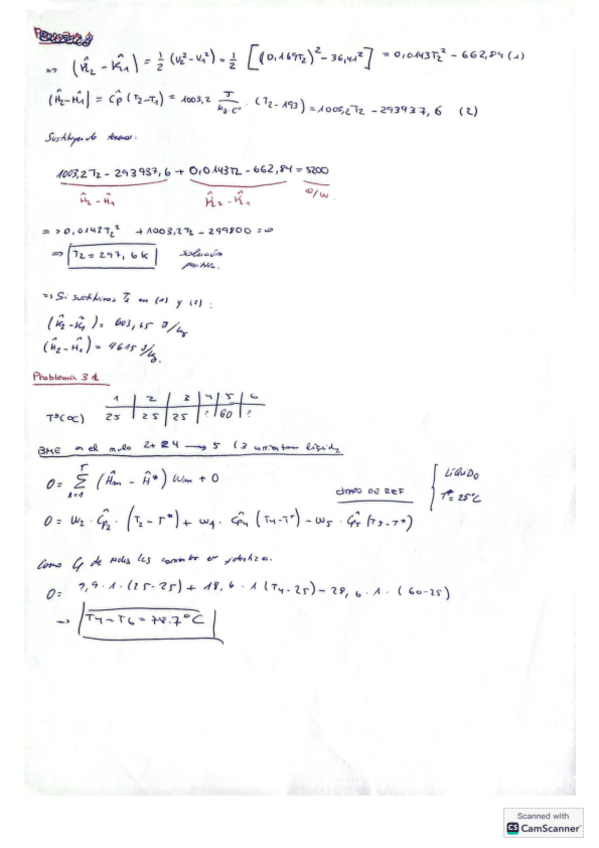 => (K̂2 - K̂1) = 1/2 (v2² - v1²) = 1/2 [(0,169T2)² - 36,41²] = 0,0143T2² - 662,84 (1)
(Ĥ2-Ĥ1) = Ĉp (T2-T1) = 1003,2 J/kg·Cº · (T2-293) = 1003,2T2 - 293937,6 (2)
Sustituyendo
1003,2T2 - 293937,6 + 0,0143T2 - 662,84 = 5200
Ĥ2 - Ĥ1 K̂2 - K̂1 Q/W
=> 0,0143T2² + 1003,2T2 - 299800 = 0
=> T2 = 297,6 K solución
=> Si sustituimos T2 en (1) y (2):
(K̂2-K̂1) = 603,15 J/kg
(Ĥ2-Ĥ1) = 4615 J/kg
Problema 31
1 2 3 4 5 6
Tª(ºC) 25 25 25 ? 60 ?
BME en el nudo 2+4 → 5 (3 corrientes líquidas
0 = Σ (Ĥm - Ĥ*) Wm + 0
ESTADO DE REF
LÍQUIDO
T* = 25ºC
0 = W2 · Ĉp2 · (T2 - T*) + W4 · Ĉp4 (T4-T*) - W5 · Ĉp5 (T5-T*)
Como Cp de todas las
0 = 9,9 · 1 · (25-25) + 18,6 · 1 (T4-25) - 28,6 · 1 · (60-25)
→ T4 = T6 = 78.7ºC
Scanned with
CS CamScanner